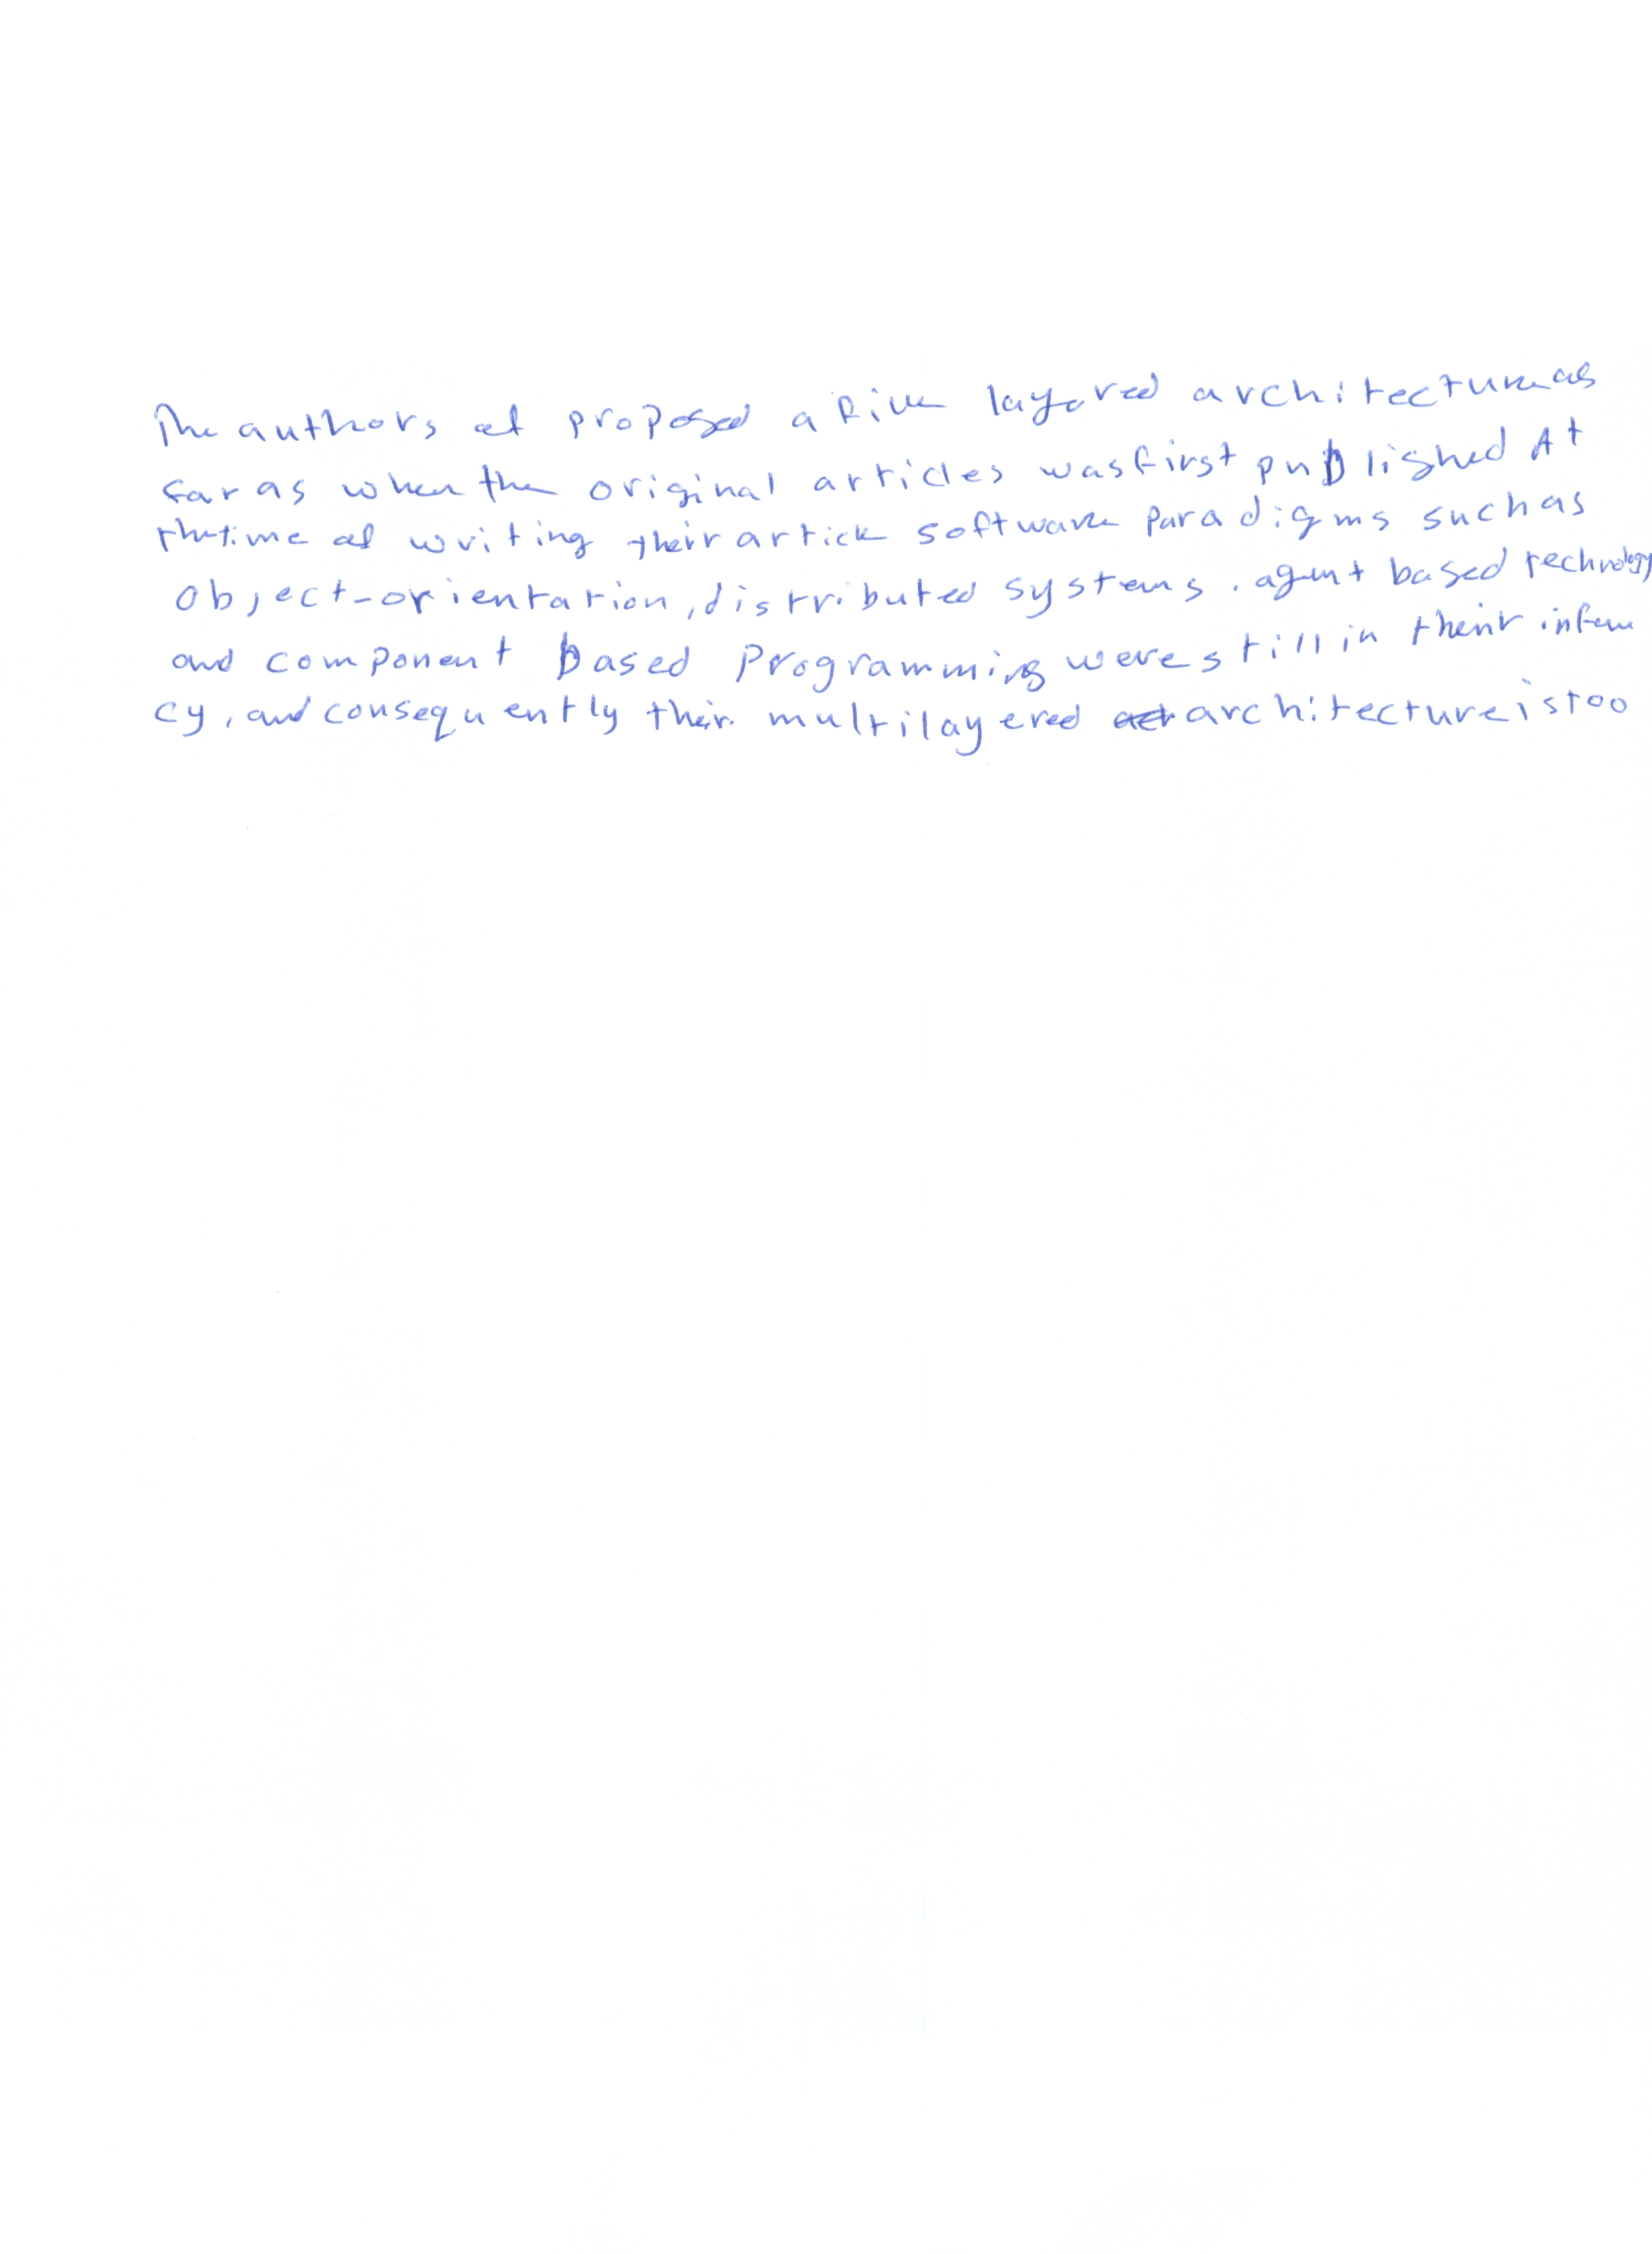 The authors of proposed a five layered architecture as
far as when the original articles was first published At
the time of writing their article software paradigms such as
object-orientation, distributed systems, agent based technology
and component based programming were still in their infan
cy, and consequently their multilayered architecture is too